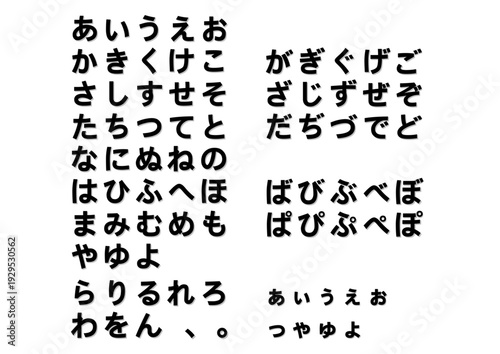 あいうえお
かきくけこ
さしすせそ
たちつてと
なにぬねの
はひふへほ
まみむめも
やゆよ
らりるれろ
わをん 、。
がぎぐげご
ざじずぜぞ
だぢづでど
ばびぶべぼ
ぱぴぷぺぽ
あいうえお
つやゆよ
Adobe Stock | #1929530562